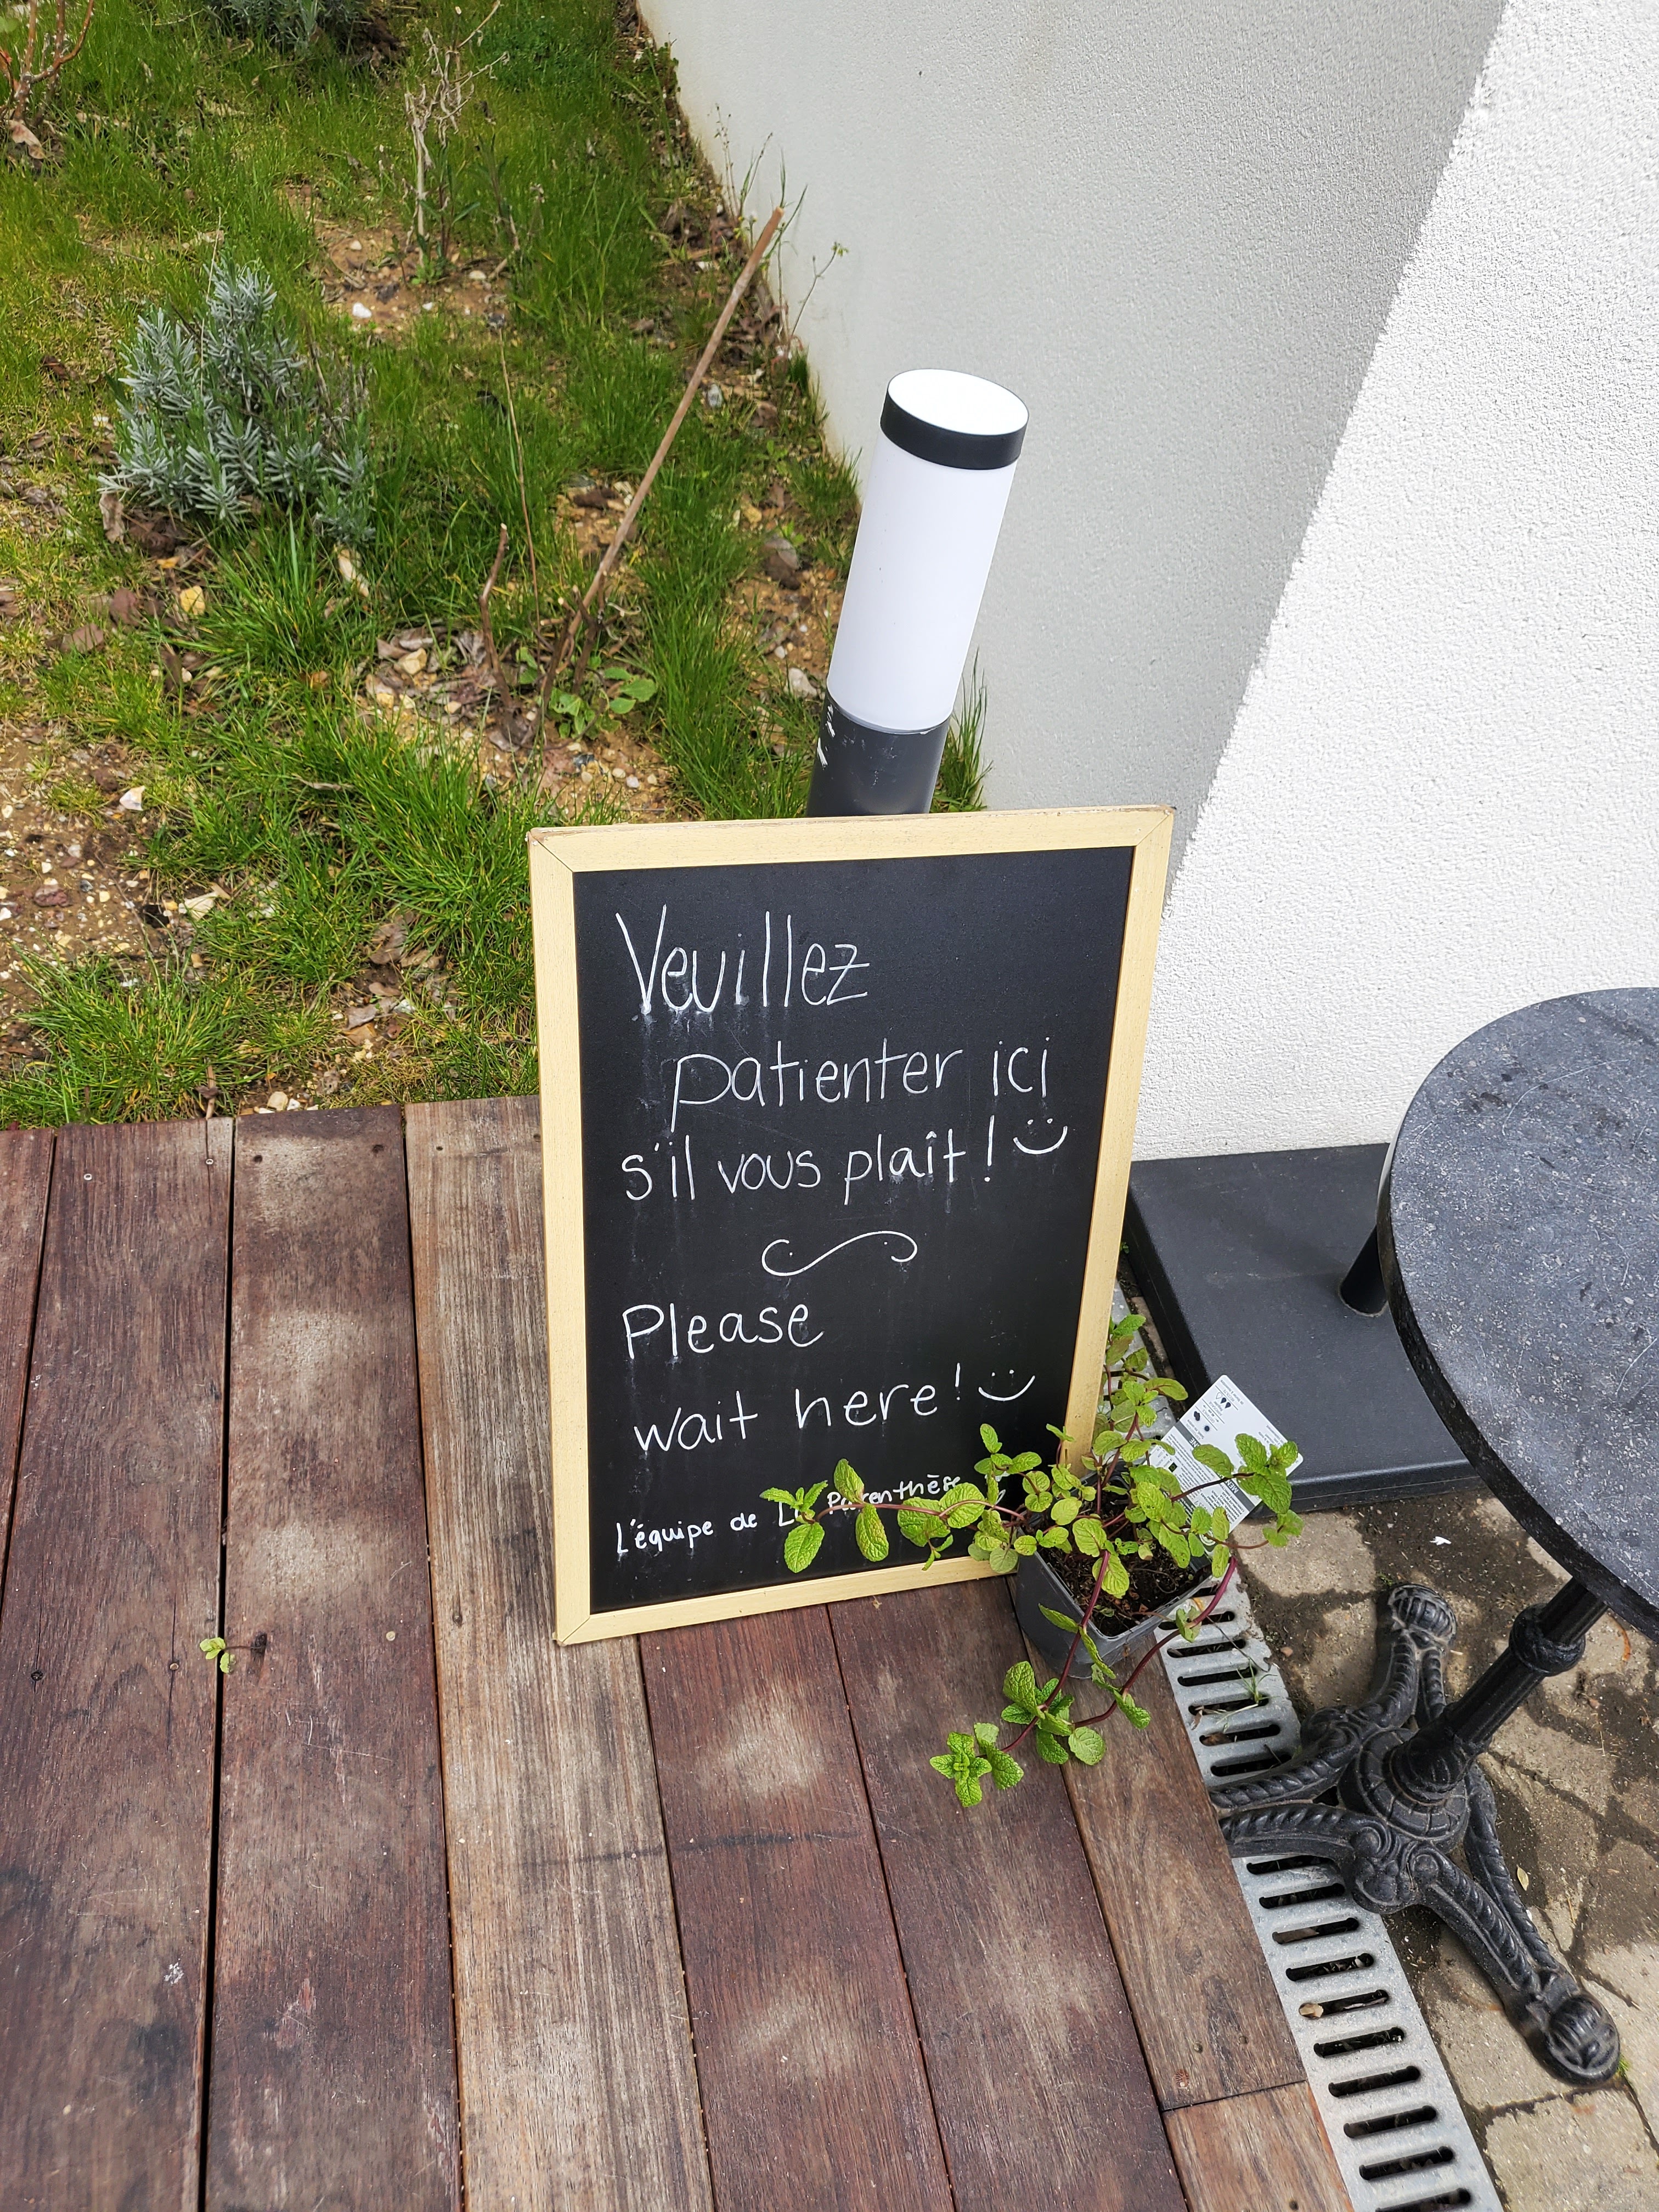 Veuillez
patienter ici
s'il vous plaît !
Please
wait here!
L'équipe de La Parenthèse